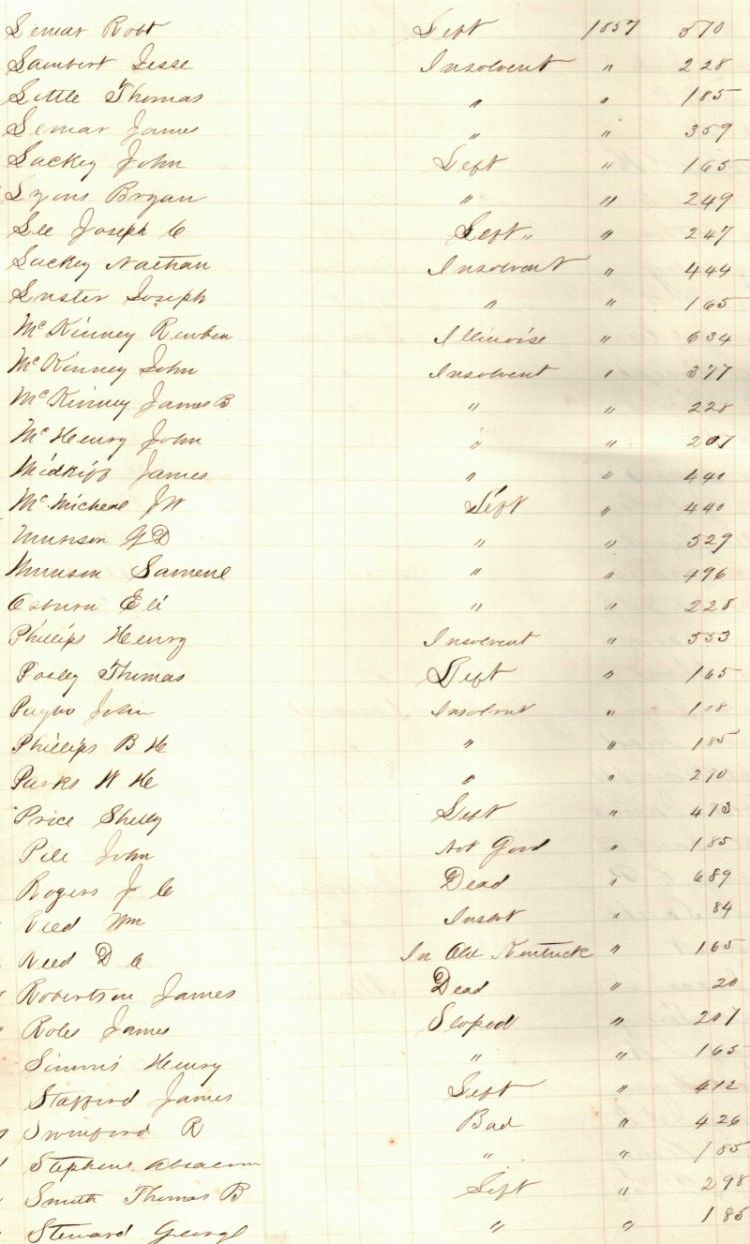 Lemar Robt Left 1857 570
Lambert Jesse Insolvent " 228
Little Thomas " " 185
Lemar James " " 359
Lackey John Left " 165
Lyons Bryan " " 249
Lee Joseph C Left " " 247
Lackey Nathan Insolvent " 444
Luster Joseph " " 165
McKinney Reuben Illinoise " 634
McKinney John Insolvent " 377
McKinney James B " " 228
McHenry John " " 207
Midkiff James " " 440
McMicheal J W Left " 440
Munson G D " " 529
Munson Samuel " " 496
Osburn Eli " " 228
Phillips Henry Insolvent " 553
Posey Thomas Left " 165
John Insolvent " 108
Phillips B H " " 185
Parks W H " " 210
Price Shelby Left " 413
Pell John Not Good " 185
Rogers J C Dead " 689
Reed Wm Insort " 84
Reed D C In Old Kentuck " 165
Robertson James Dead " 20
Roles James Sloped " 207
Simms Henry " " 165
Stafford James Left " 412
Swinford R Bad " 426
Stephens Absacom " " 185
Smith Thomas B Left " 298
Steward George " " 185